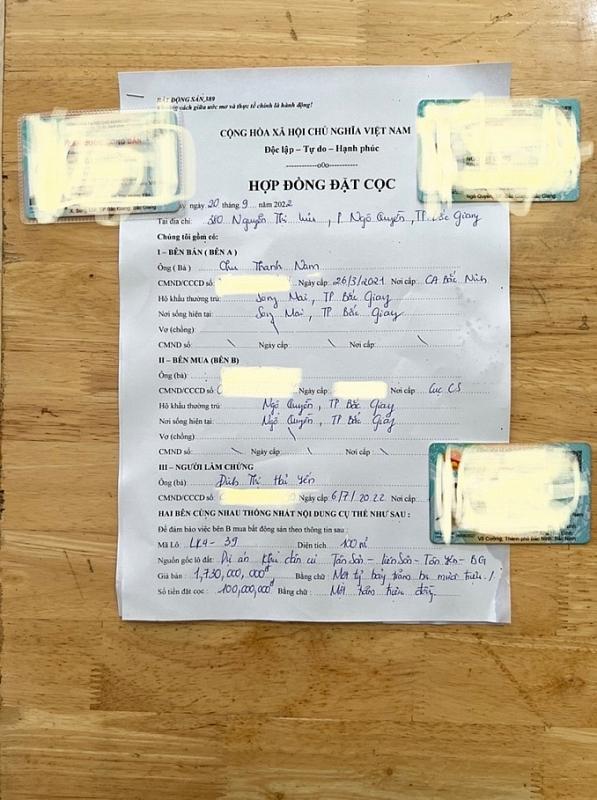 BẤT ĐỘNG SẢN 389
cách giữa ước mơ và thực tế chính là hành động!
CỘNG HÒA XÃ HỘI CHỦ NGHĨA VIỆT NAM
Độc lập – Tự do – Hạnh phúc
-----------o0o-----------
HỢP ĐỒNG ĐẶT CỌC
ngày 20 tháng 9 năm 2022
Tại địa chỉ: 380 Nguyễn Thị Lưu, P Ngô Quyền, TP Bắc Giang
Chúng tôi gồm có:
I – BÊN BÁN ( BÊN A )
Ông ( Bà ) Chu Thanh Nam
CMND/CCCD số: Ngày cấp: 26/3/2021 Nơi cấp: CA Bắc Ninh
Hộ khẩu thường trú: Song Mai, TP Bắc Giang
Nơi sống hiện tại: Song Mai, TP Bắc Giang
Vợ (chồng)
CMND số: Ngày cấp Nơi cấp:
II – BÊN MUA (BÊN B)
Ông (bà):
CMND/CCCD số Ngày cấp Nơi cấp: Cục CS
Hộ khẩu thường trú: Ngô Quyền, TP Bắc Giang
Nơi sống hiện tại: Ngô Quyền, TP Bắc Giang
Vợ (chồng)
CMND số: Ngày cấp Nơi cấp:
III – NGƯỜI LÀM CHỨNG
Ông (bà) Đinh Thị Hải Yến
CMND/CCCD số: Ngày cấp 6/7/2022 Nơi cấp
HAI BÊN CÙNG NHAU THỐNG NHẤT NỘI DUNG CỤ THỂ NHƯ SAU :
Để đảm bảo việc bên B mua bất động sản theo thông tin sau :
Mã Lô : LK4-39 Diện tích 100m²
Nguồn gốc lô đất: Dự án Khu dân cư Tân Sơn - Liên Sơn - Tân Yên - BG
Giá bán : 1,730,000,000đ Bằng chữ Một tỷ bảy trăm ba mươi triệu ./
Số tiền đặt cọc : 100,000,000đ Bằng chữ : Một trăm triệu đồng
Võ Cường, Thành phố Bắc Ninh, Bắc Ninh